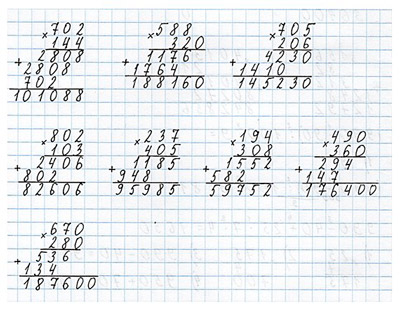 ×702
144
+2808
2808
702
101088
×588
320
+1176
1764
188160
×705
206
+4230
1410
145230
×802
103
+2406
802
82606
×237
405
+1185
948
95985
×194
308
+1552
582
59752
×490
360
+294
147
176400
×670
280
+536
134
187600